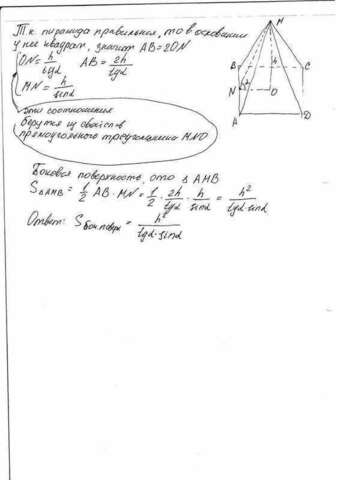 Т.к. пирамида правильная, то в основании
у нее квадрат, значит AB=2ON
ON = h/tgα AB = 2h/tgα
MN = h/sinα
эти соотношения
берутся из свойств
прямоугольного треугольника MNO
M
h
B
C
N
α
O
A
D
Боковая поверхность, это Δ AMB
S ΔAMB = 1/2 AB · MN = 1/2 · 2h/tgα · h/sinα = h²/tgα·sinα
Ответ: S бок поверх = h²/tgα·sinα